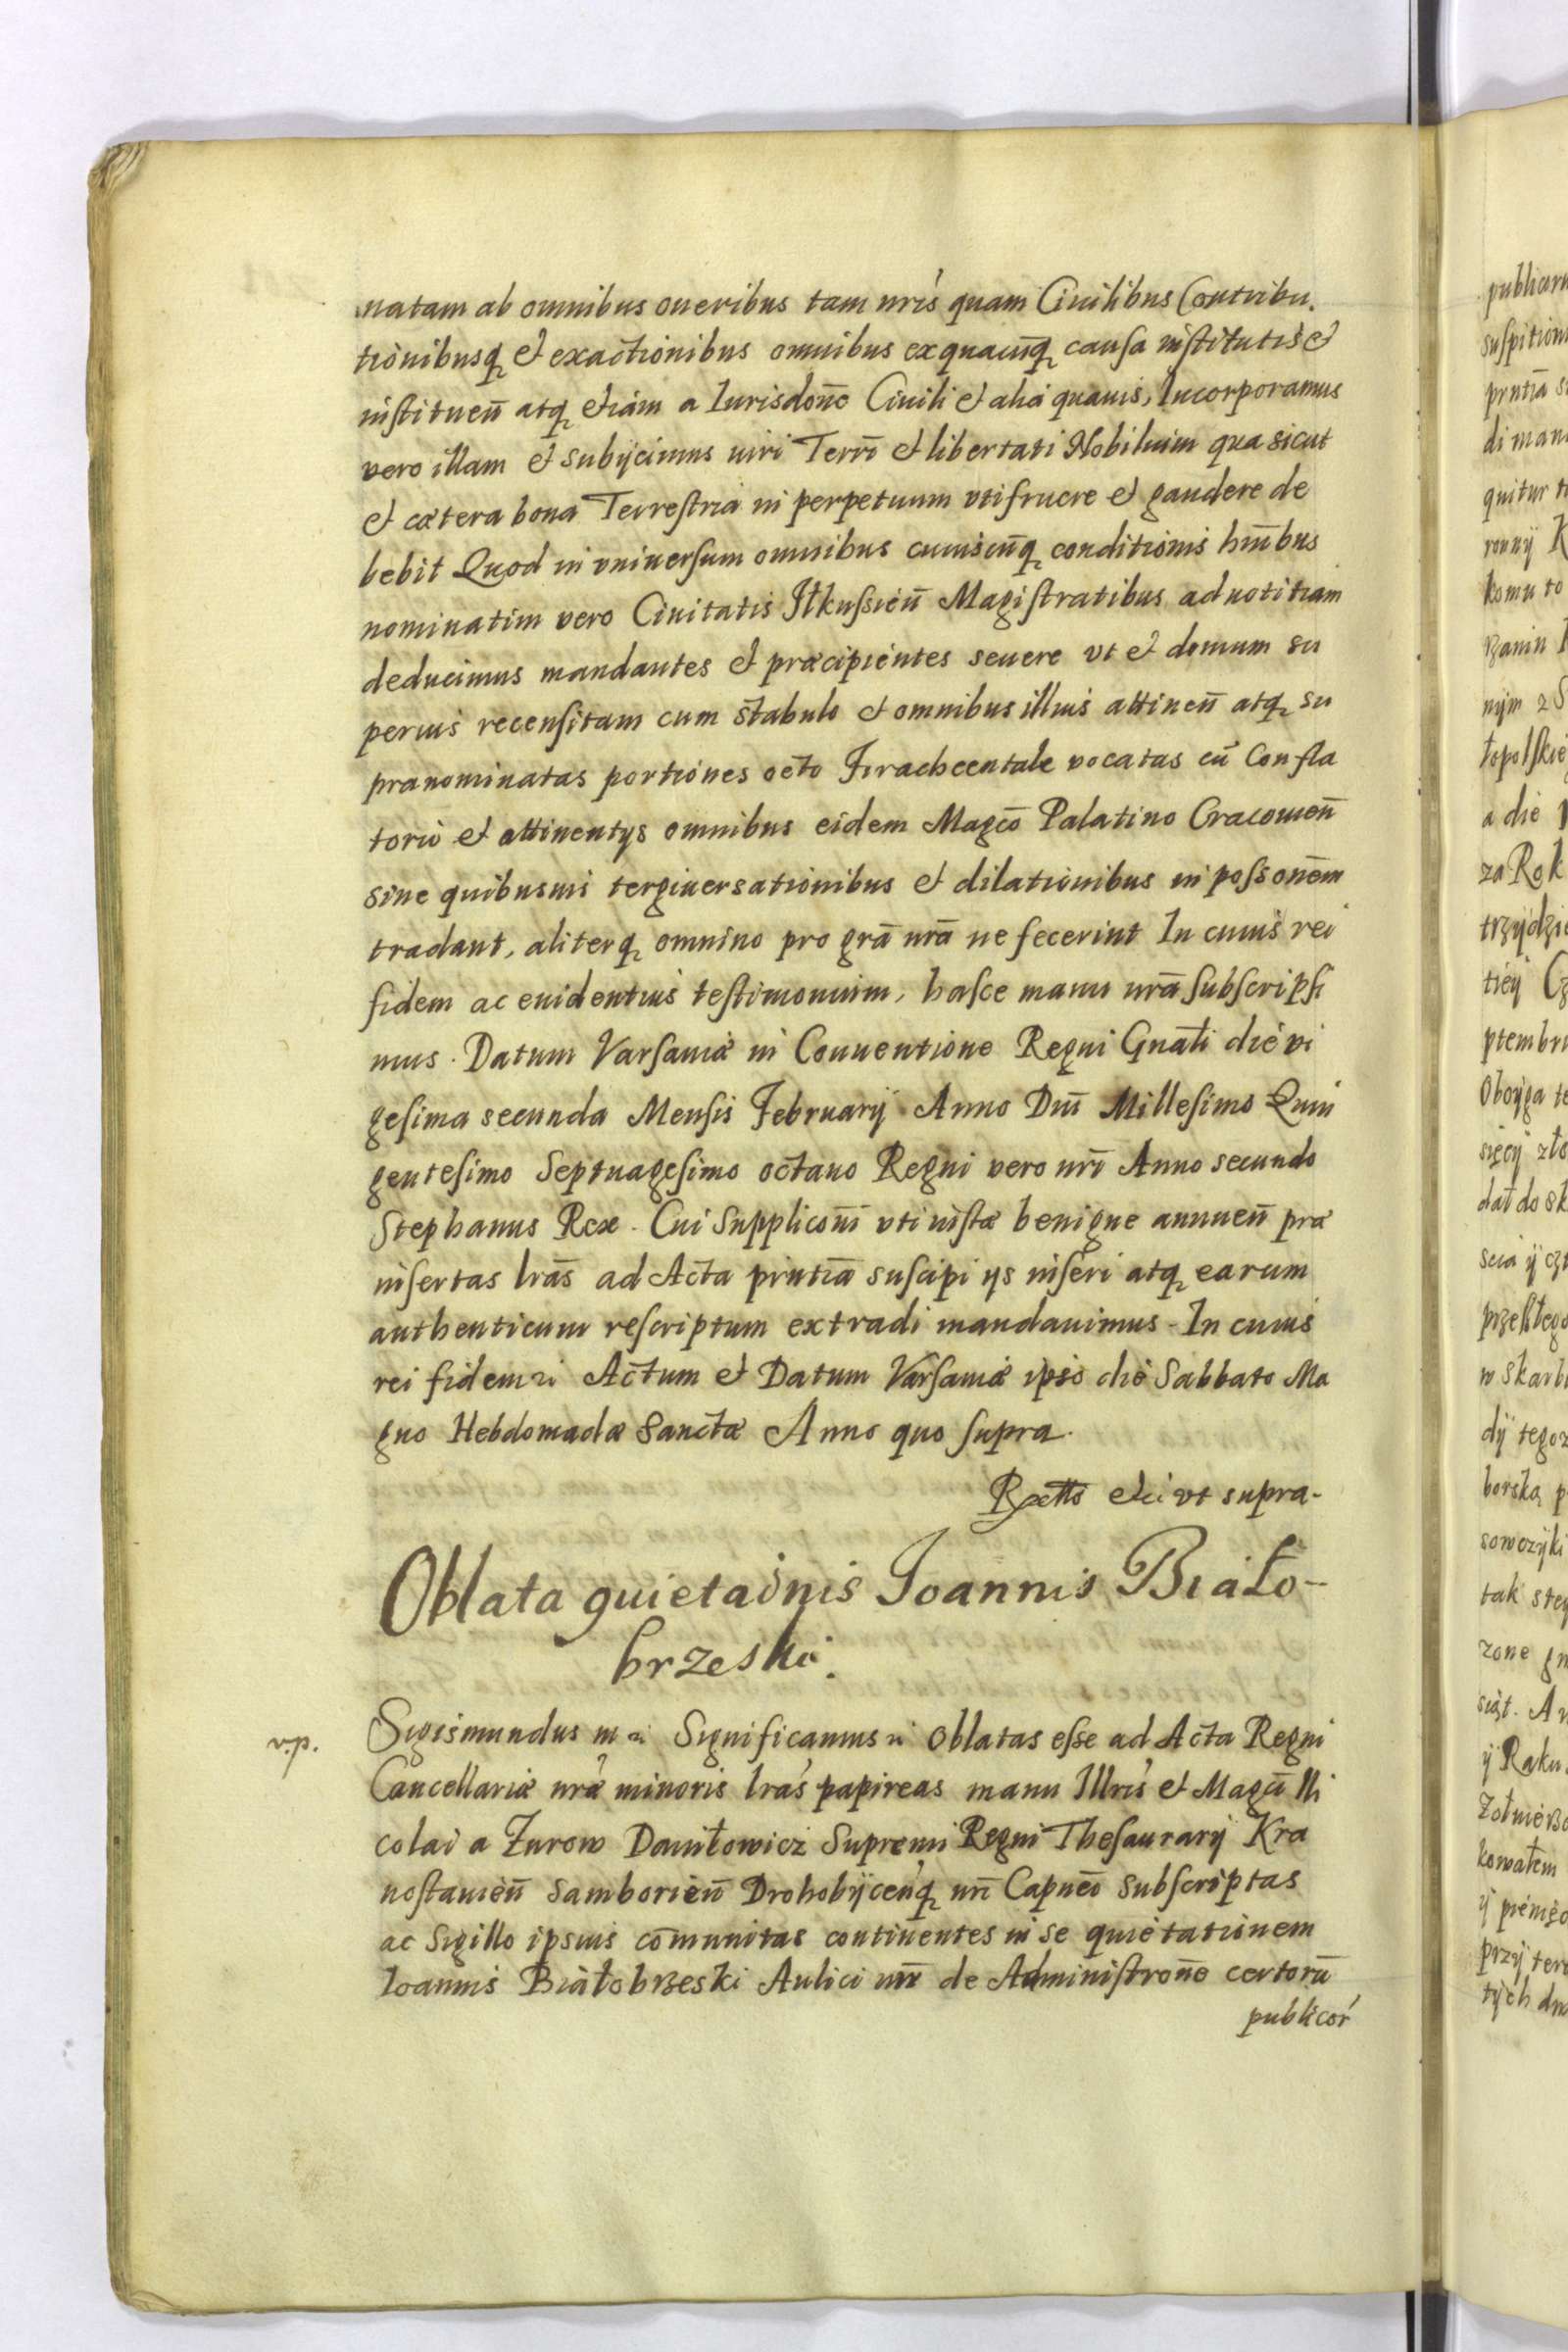 natam ab omnibus oneribus tam nris quam Ciuilibus Contribu.
tionibusq et exactionibus omnibus ex quacunq causa institutis et
instituen̄ atq etiam a Iurisdon̄e Ciuili et alia quauis, Incorporamus
vero illam et subijcimus iuri Terri et libertati Nobilium qua sicut
et cætera bona Terrestria in perpetuum vtifruere et gaudere de
bebit Quod in vniuersum omnibus cuiuscunq conditionis hin̄bus
nominatim vero Ciuitatis Ilkussien̄ Magistratibus ad notitiam
deducimus mandantes et præcipientes seuere vt et domum su
perius recensitam cum stabulo et omnibus illius attinen̄ atq su
pranominatas portiones octo Firacheentale vocatas cū Confla
torio et attinentijs omnibus eidem Magco Palatino Cracouien̄
sine quibusuis tergiuersationibus et dilationibus in possonēm
tradant, aliterq omnino pro grā nrā ne fecerint In cuius rei
fidem ac euidentius testimonium, hasce manu nrā subscripsi
mus. Datum Varsauiæ in Conuentione Regni Gnāli die vi
gesima secunda Mensis Februarij Anno Dni Millesimo Quin
gentesimo Septuagesimo octauo Regni vero nrī Anno secundo
Stephanus Rex. Cui Supplicon̄i vti iustæ benigne annuen̄ præ
insertas lrās ad Acta prntiā suscipi ijs inseri atq earum
authenticum rescriptum extradi mandauimus. In cuius
rei fidem Actum et Datum Varsauiæ ipso die Sabbato Ma
gno Hebdomadæ Sanctæ Anno quo supra.
vt supra.
Oblata quietaōnis Joannis Biało-
brzeski.
v.p. Sigismundus Significamus Oblatas esse ad Acta Regni
Cancellariæ nræ minoris lras papireas manu Illris et Magci Ni
colai a Żurow Daniłowicz Supremi Regni Thesaurarij Kra
nostauien̄ Samborien̄ Drohobijcenq nri Capnei subscriptas
ac Sigillo ipsius com̄unitas continentes in se quietationem
Ioannis Białobrzeski Aulici nri de Administron̄e certorū
publicor